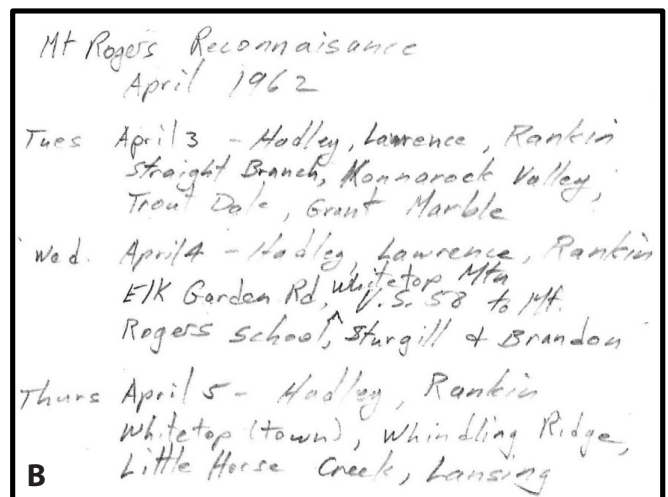 Mt Rogers Reconnaisance
April 1962
Tues April 3 - Hadley, Lawrence, Rankin
Straight Branch, Konnarock Valley,
Trout Dale, Grant Marble
Wed. April 4 - Hadley, Lawrence, Rankin
Elk Garden Rd, Whitetop Mtn U.S. 58 to Mt.
Rogers School, Sturgill & Brandon
Thurs April 5 - Hadley, Rankin
Whitetop (town), Whindling Ridge,
Little Horse Creek, Lansing
B